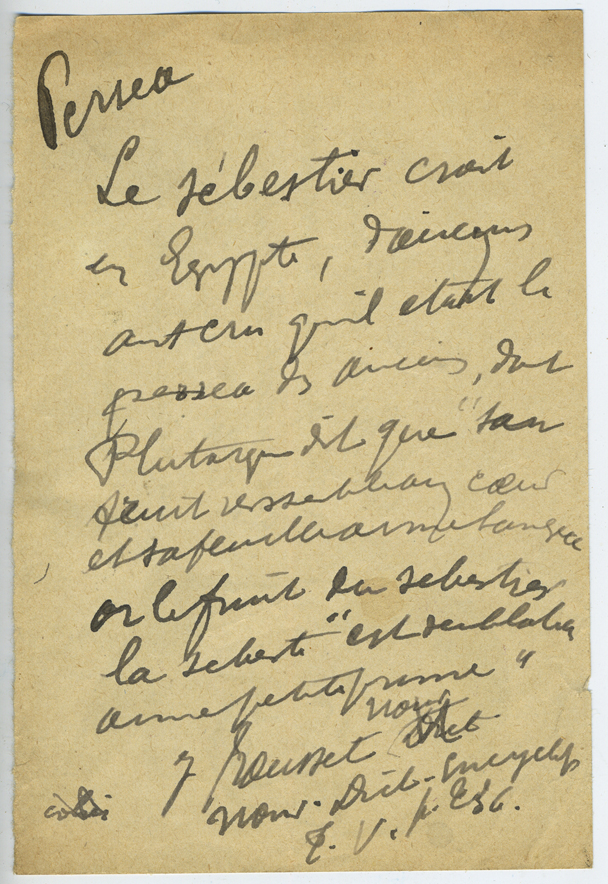 Persea
Le sébestier croit
en Egypte, d'aucuns
ont cru qu'il etait le
persea des anciens, dont
Plutarque dit que "son
fruit ressemble au cœur
et sa feuille a une langue
or le fruit du sebestier
la sebeste "est semblable
a une petite prune"
nouv
Rousset Dict
Nouv. Dict. encyclop
T. V. p.